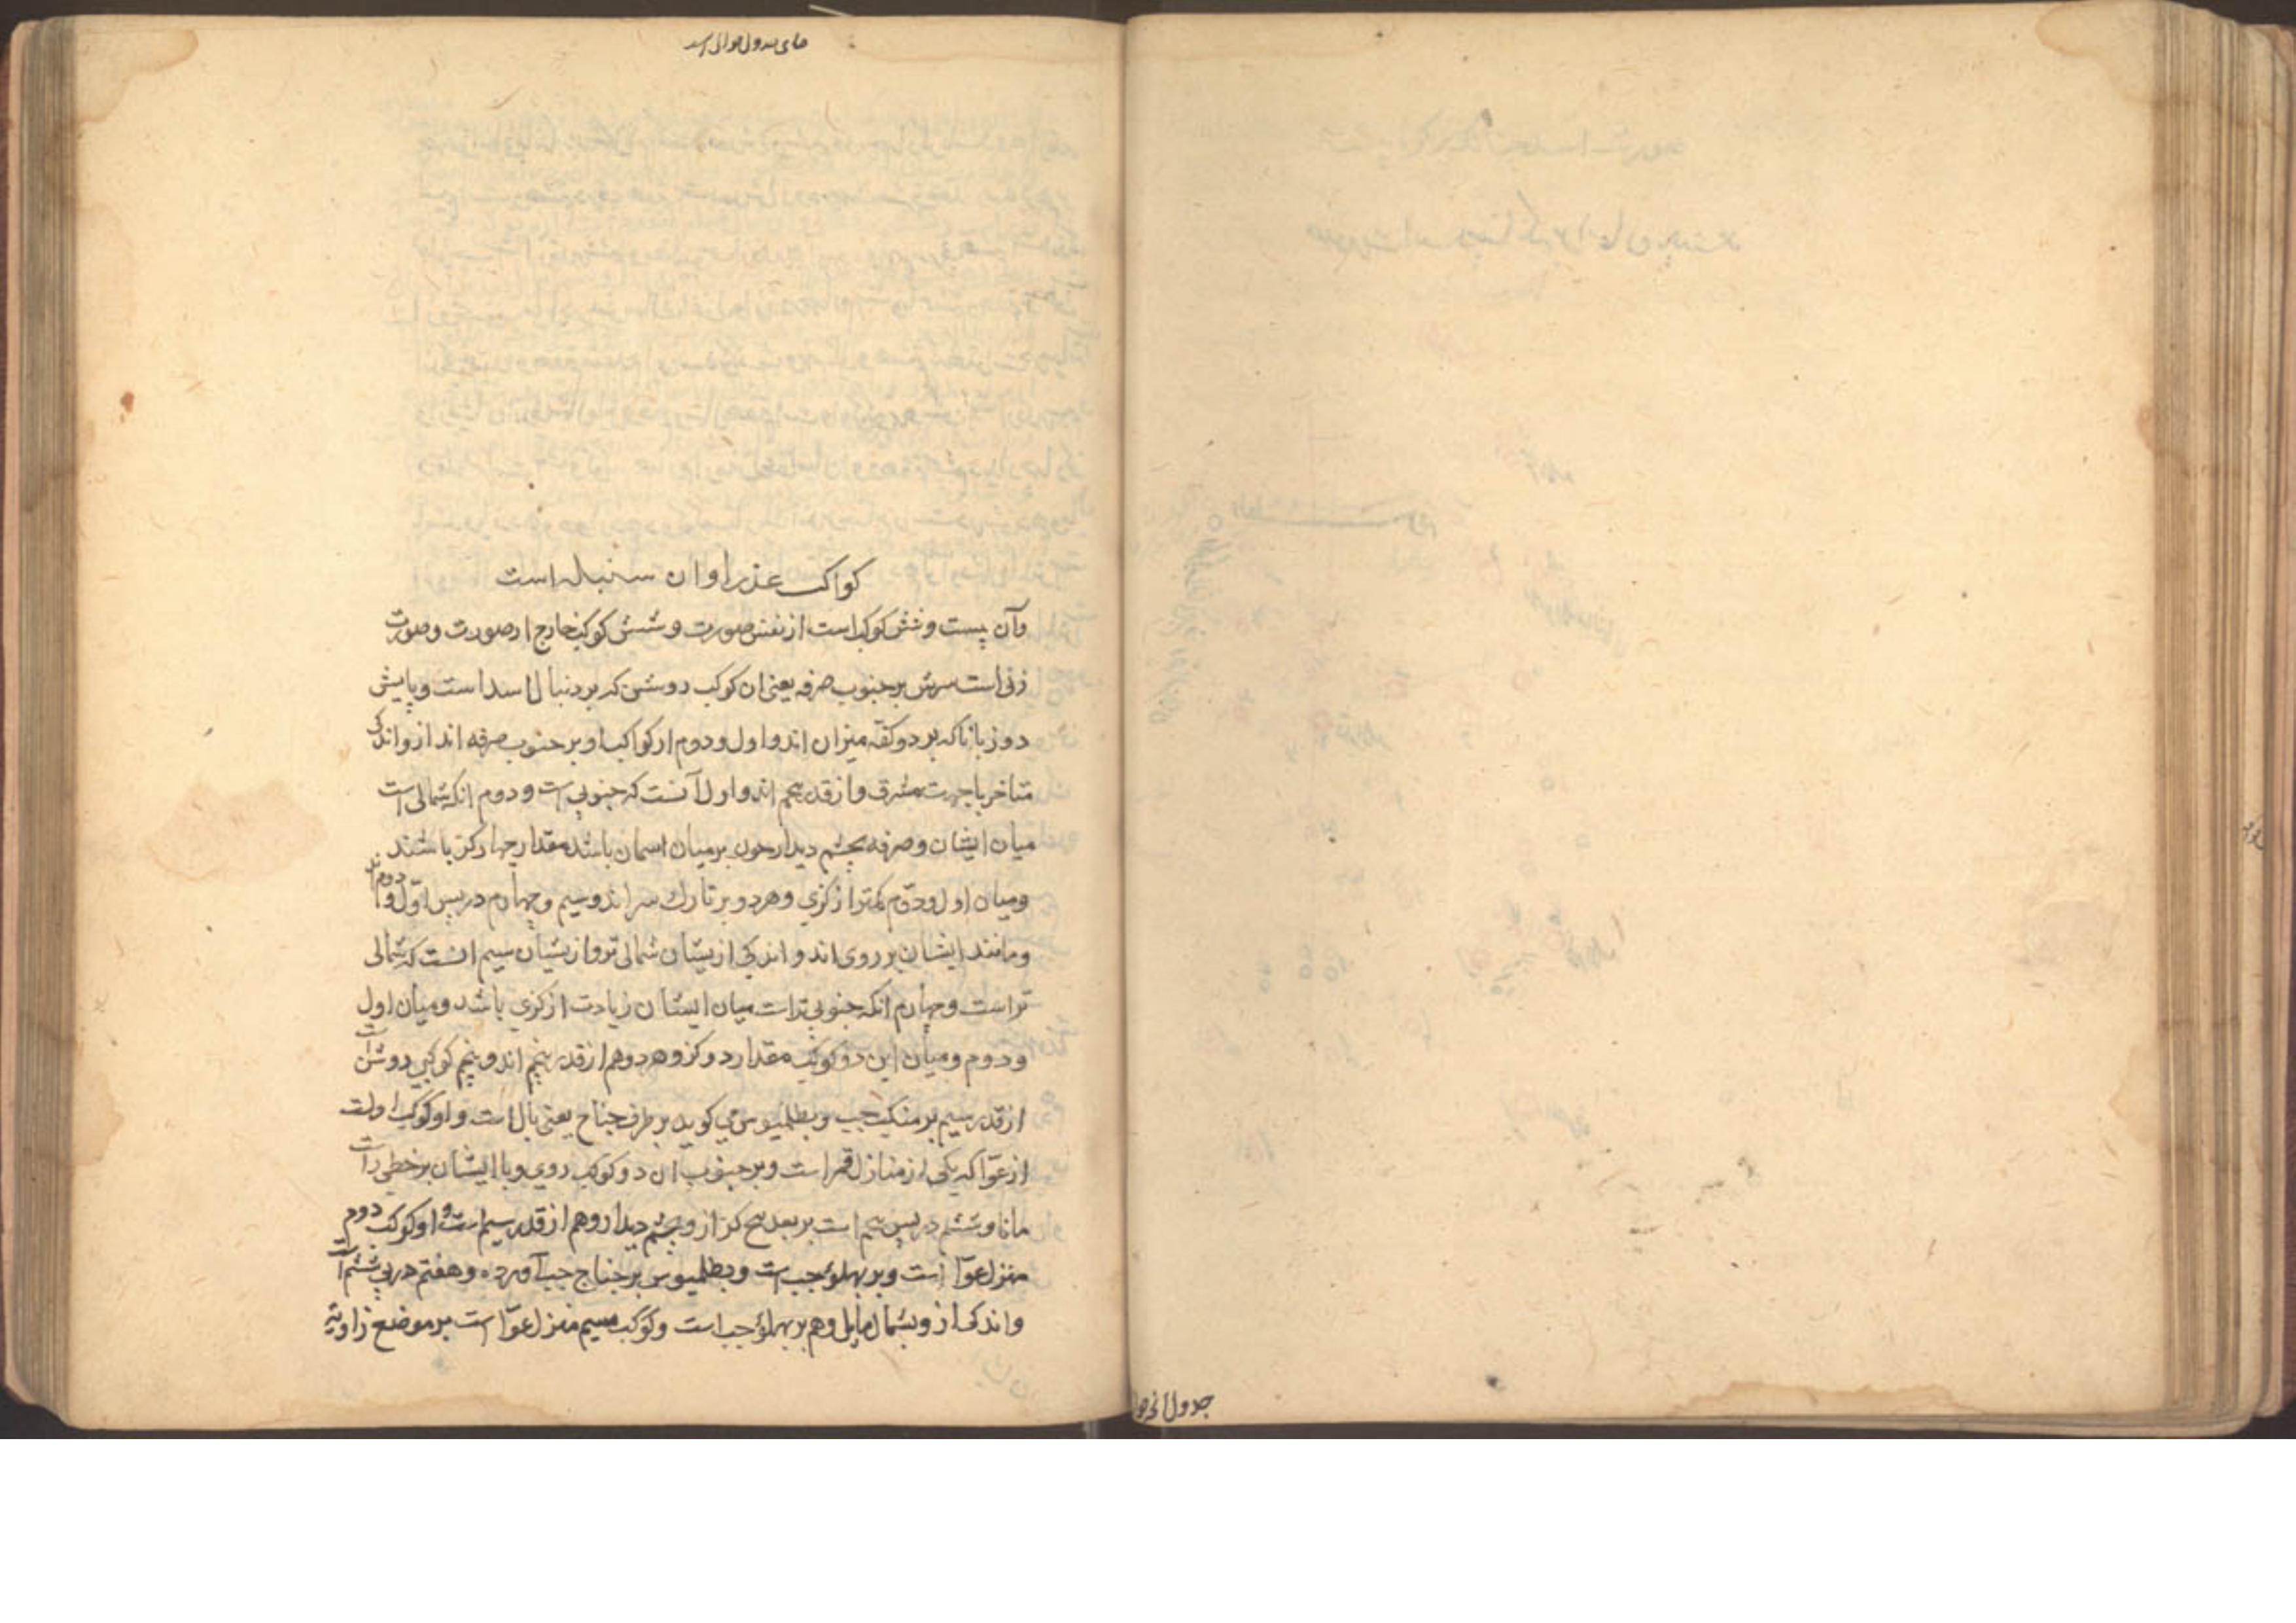 جدول
جدول اسد
کواکب عذرا و ان سنبله است
وآن پست و شش کوکب است از نفس صورت و شش کوکب خارج ار صورت وصورت
زنی است سرش بر جنوب صرفه یعنی ان کوکب روشن که بر دنبال اسد است و پایش
دو زبانا که بر دو کفهٔ میزان اند و اول و دوم ار کواکب او بر جنوب صرفه اند از و اندکی
متاخر با جهت مشرق و از قدر پنجم اند و اول آنست که جنوبی است و دوم انکه شمالی است
میان ایشان و صرفه بچشم دیدار چون بر میان اسمان باشند مقدار چهار کز باشند
و میان اول و دوّم کمتر از کزی و هر دو بر تارك سر اند و سیم و چهارم در پس اوّل و دوم اند
و مانند ایشان بر روی اند و اندکی ازیشان شمالی تر و ازیشان سیم انست که شمالی
تر است و چهارم انکه جنوبی تر است میان ایشان زیادت از کزی باشد و میان اول
و دوم و میان این دو کوکب مقدار دو کز و هر دو هم از قدر پنجم اند و پنجم کوکبی روشن است
از قدر سیم بر منکب چپ و بطلمیوس می کوید بر طرف جناح یعنی بال است و او کوکب اولست
از عوّا که یکی از منازل قمر است و بر جنوب ان دو کوکب روی و با ایشان بر خطی راست
مانا و ششم در پس پنجم است بر بعد پنج کز از و بچشم دیدار و هم از قدر سیم است و او کوکب دوم
منزل عوّا است و بر پهلوی چپ است و بطلمیوس بر جناح چپ آورده و هفتم در پی ششم است
و اندکی از و بشمال مایل و هم بر پهلوی چپ است و کوکب سیم منزل عوّا است بر موضع زاویه